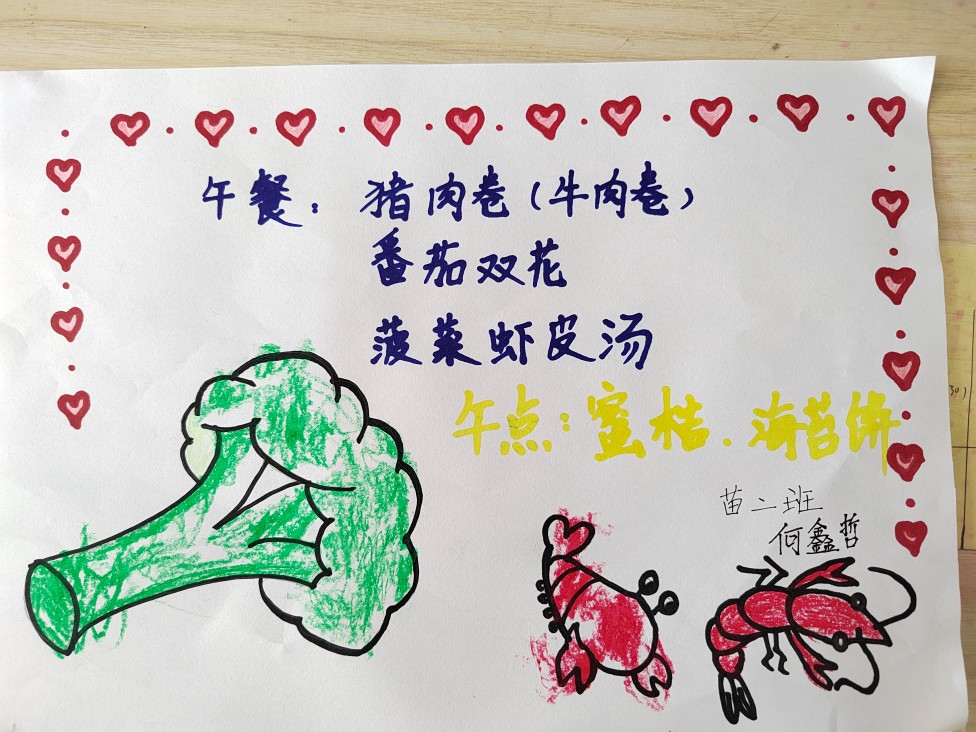 午餐：猪肉卷（牛肉卷）
番茄双花
菠菜虾皮汤
午点：蜜桔．海苔饼
苗二班
何鑫哲